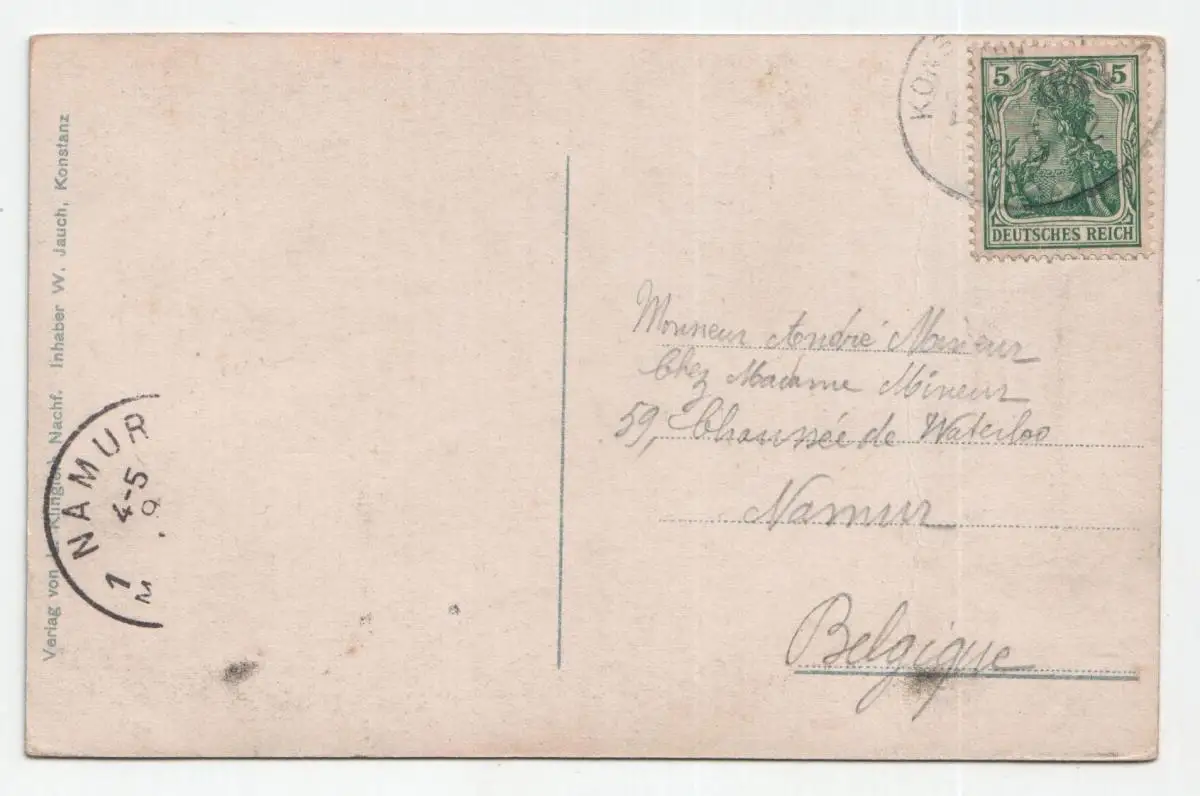 Verlag von Klinglers Nachf. Inhaber W. Jauch, Konstanz
KONS
5 5
DEUTSCHES REICH
Monsieur André Mineur
Chez Madame Mineur
59, Chaussée de Waterloo
Namur
Belgique
NAMUR
4-5